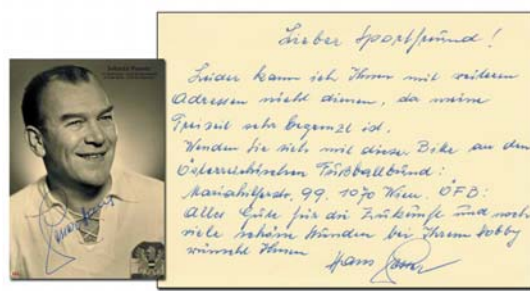 Lieber Sportfreund!
Leider kann ich Ihnen mit weiteren
Adressen nicht dienen, da meine
Freizeit sehr begrenzt ist.
Wenden Sie sich mit dieser Bitte an den
Österreichischen Fußballbund:
Mariahilferstr. 99. 1070 Wien. ÖFB:
Alles Gute für die Zukunft und noch
viele schöne Stunden bei Ihrem Hobby
wünscht Ihnen
Hans